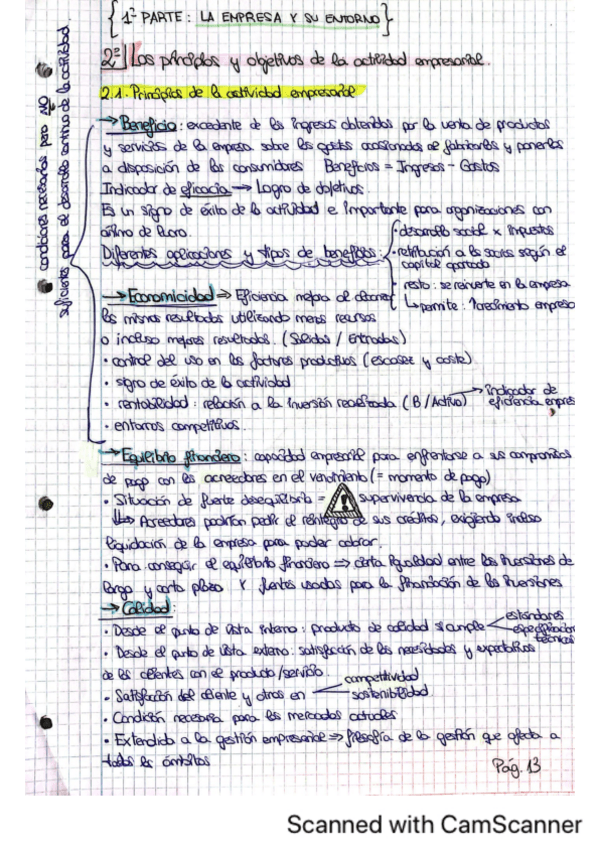 1ª PARTE: LA EMPRESA Y SU ENTORNO
2º Los principios y objetivos de la actividad empresarial.
2.1. Principios de la actividad empresarial
→ Beneficio: excedente de los ingresos obtenidos por la venta de productos
y servicios de la empresa sobre los gastos ocasionados al fabricarlos y ponerlos
a disposición de los consumidores Beneficios = Ingresos - Gastos
Indicador de eficacia → Logro de objetivos.
Es un signo de éxito de la actividad e importante para organizaciones con
ánimo de lucro.
Diferentes aplicaciones y tipos de beneficios:
· desarrollo social x impuestos
· retribución a los socios según el
capital aportado
· resto: se reinvierte en la empresa
↳ permite: crecimiento empresa
→ Economicidad ⇒ Eficiencia mejora al obtener
los mismos resultados utilizando menos recursos
o incluso mejores resultados. (Salidas / Entradas)
· control del uso en los factores productivos (escasez y coste)
· signo de éxito de la actividad
· rentabilidad: relación a la inversión realizada (B / Activo) → indicador de
eficiencia empres
· entornos competitivos.
condiciones necesarias pero NO
suficientes para el desarrollo continuo de la actividad.
→ Equilibrio financiero: capacidad empresarial para enfrentarse a sus compromisos
de pago con los acreedores en el vencimiento (= momento de pago)
· Situación de fuerte desequilibrio = ⚠ supervivencia de la empresa
↳ Acreedores podrían pedir el reintegro de sus créditos, exigiendo incluso
liquidación de la empresa para poder cobrar.
· Para conseguir el equilibrio financiero ⇒ cierta igualdad entre las inversiones de
largo y corto plazo y fuentes usadas para la financiación de las inversiones
→ Calidad:
· Desde el punto de vista interno: producto de calidad si cumple
estándares
especificacion
técnicas
· Desde el punto de vista externo: satisfacción de las necesidades y expectativas
de los clientes con el producto/servicio.
· Satisfacción del cliente y otros en
competitividad
sostenibilidad
· Condición necesaria para los mercados actuales
· Extendida a la gestión empresarial ⇒ filosofía de la gestión que afecta a
todos los ámbitos
Pág. 13
Scanned with CamScanner